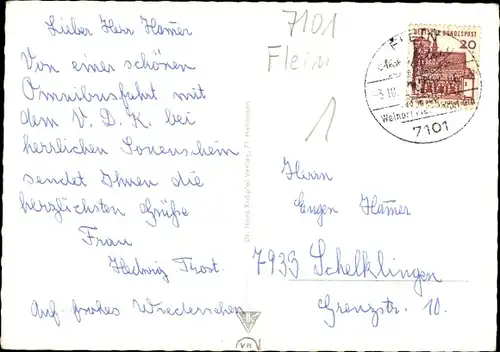 Lieber Herr Hamer
Von einer schönen
Omnibusfahrt mit
dem V. D. K. bei
herrlichen Sonenschein
sendet Ihnen die
herzlichsten Grüße
Frau
Hedwig Trost.
Auf frohes Wiedersehen
7101
Flein
1
FLEIN
DEUTSCHE BUNDESPOST
20
7101
Herrn
Eugen Hamer
7933 Schelklingen
Grenzstr. 10.
VII